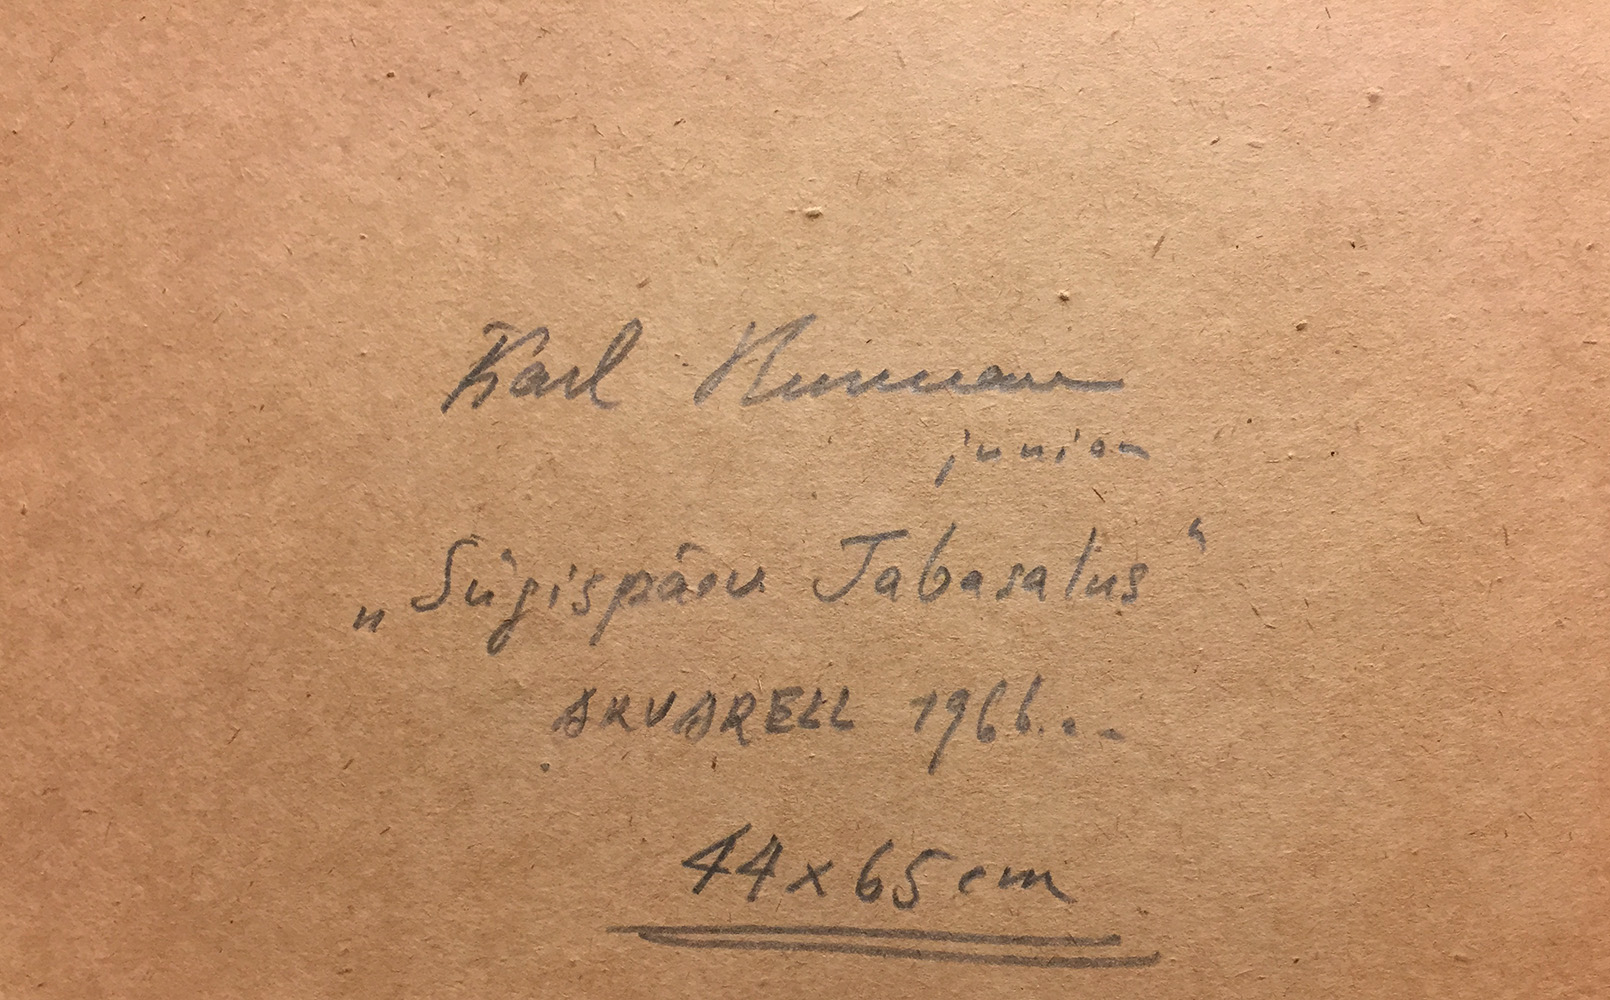 Karl Burman
junior
„Sügispäev Tabasalus“
AKVARELL 1966...
44 x 65 cm